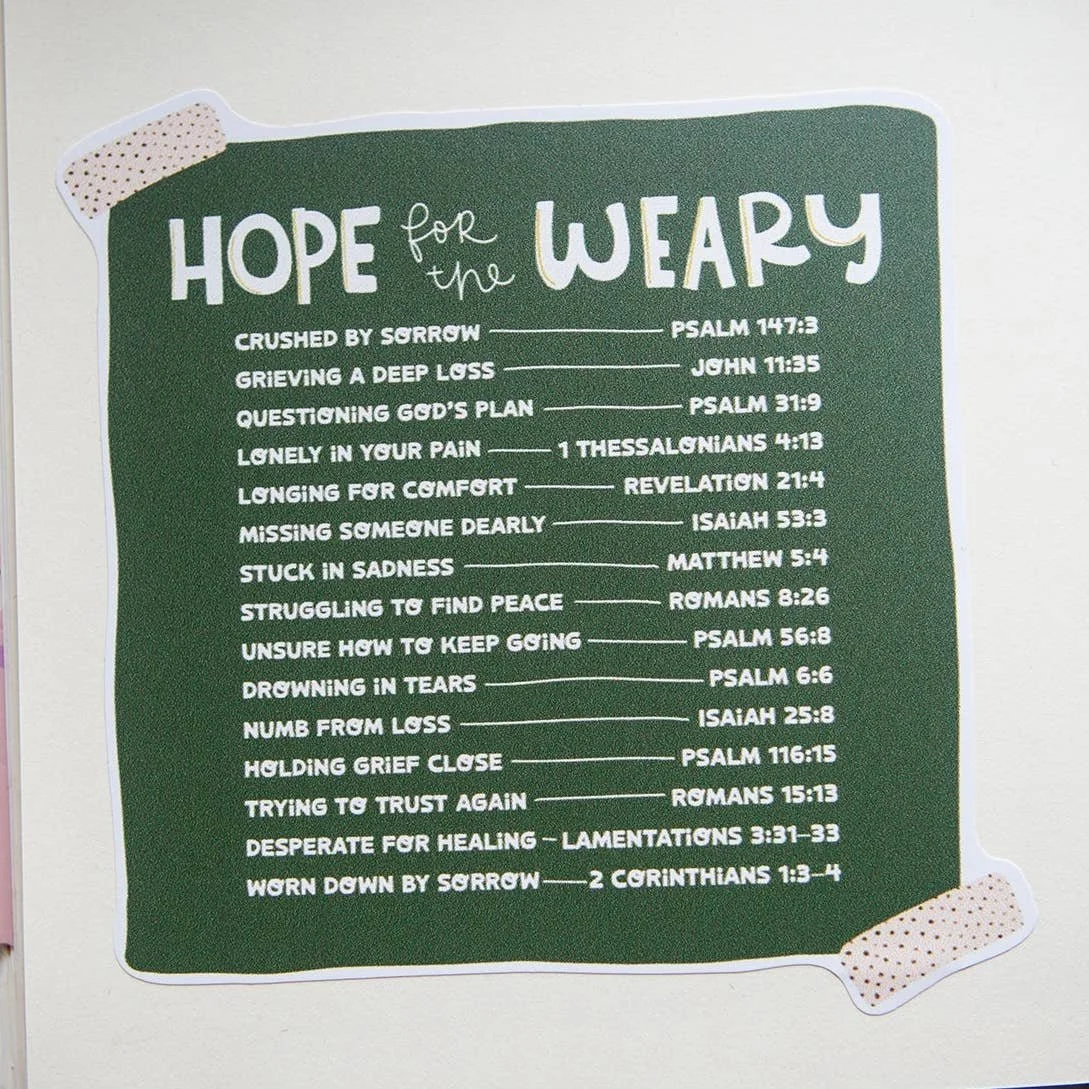 HOPE for the WEARY
CRUSHED BY SORROW — PSALM 147:3
GRIEVING A DEEP LOSS — JOHN 11:35
QUESTIONING GOD'S PLAN — PSALM 31:9
LONELY IN YOUR PAIN — 1 THESSALONIANS 4:13
LONGING FOR COMFORT — REVELATION 21:4
MISSING SOMEONE DEARLY — ISAIAH 53:3
STUCK IN SADNESS — MATTHEW 5:4
STRUGGLING TO FIND PEACE — ROMANS 8:26
UNSURE HOW TO KEEP GOING — PSALM 56:8
DROWNING IN TEARS — PSALM 6:6
NUMB FROM LOSS — ISAIAH 25:8
HOLDING GRIEF CLOSE — PSALM 116:15
TRYING TO TRUST AGAIN — ROMANS 15:13
DESPERATE FOR HEALING — LAMENTATIONS 3:31–33
WORN DOWN BY SORROW — 2 CORINTHIANS 1:3–4